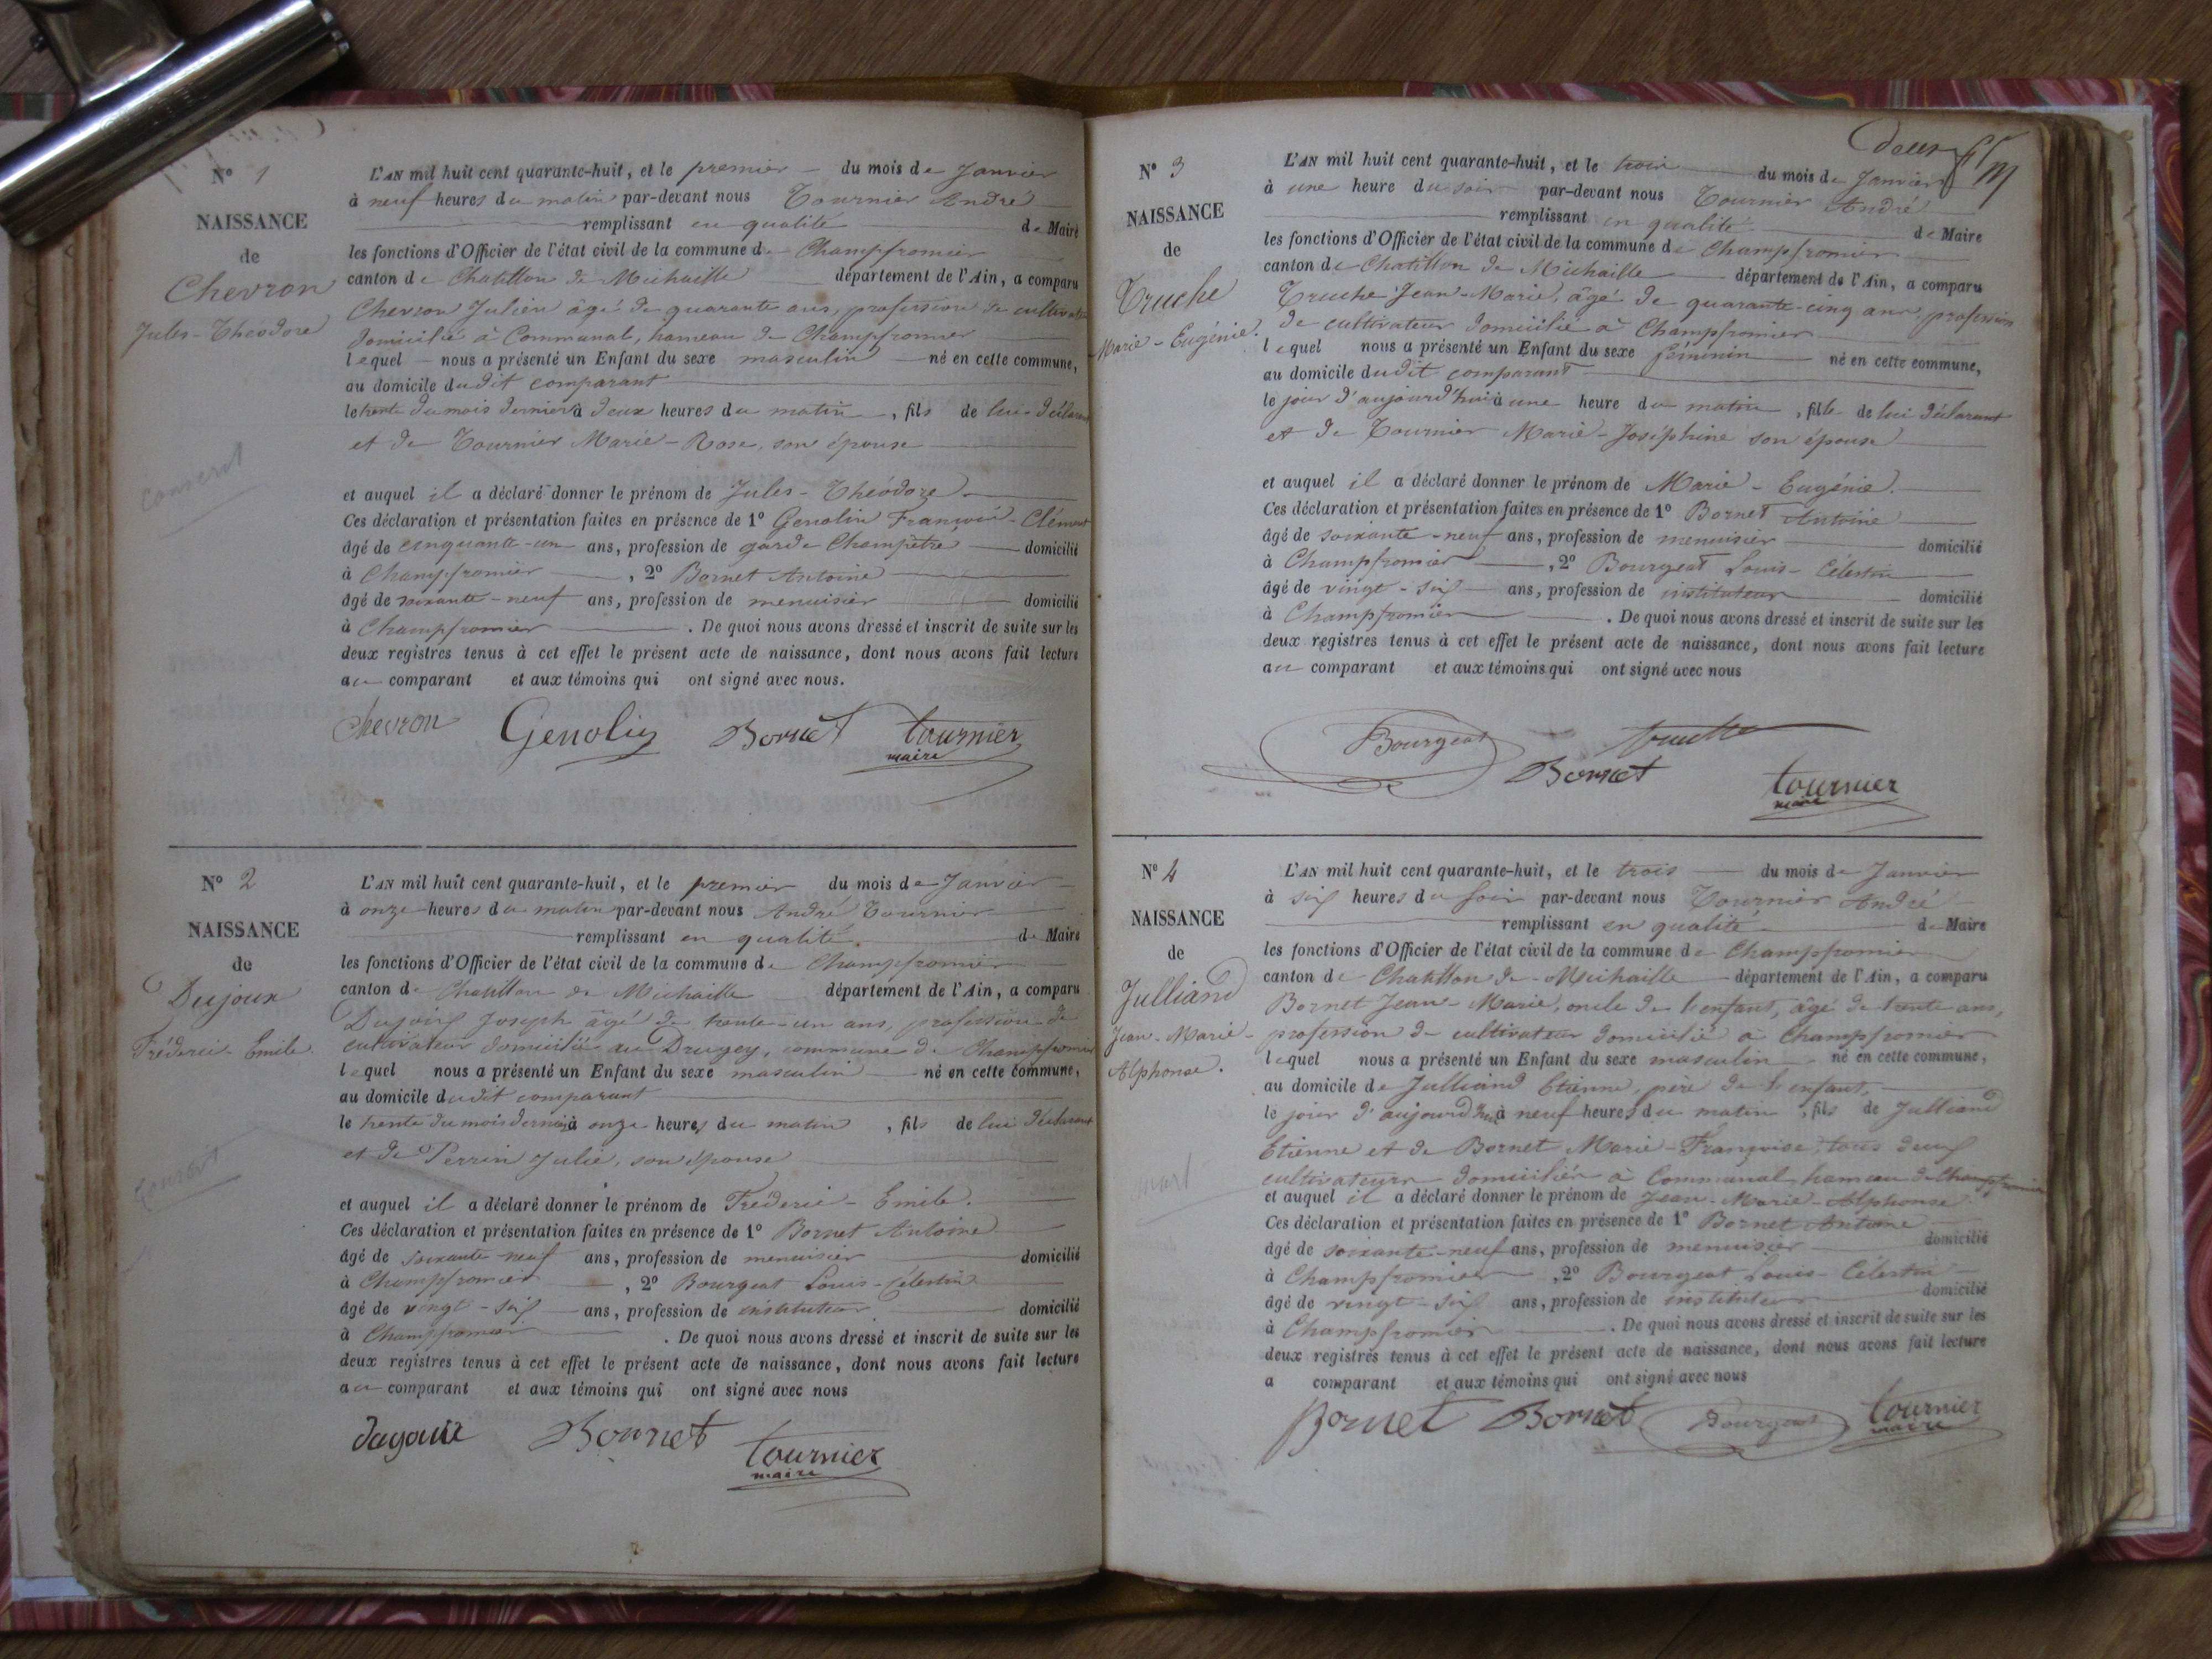 N° 1
NAISSANCE
de
Chevron
Jules-Théodore
conscrit
L'AN mil huit cent quarante-huit, et le premier du mois de Janvier
à neuf heures du matin par-devant nous Tournier André
remplissant en qualité de Maire
les fonctions d'Officier de l'état civil de la commune de Champfromier
canton de Chatillon de Michaille département de l'Ain, a comparu
Chevron Julien âgé de quarante ans, profession de cultivateur
domicilié à Communal, hameau de Champfromier
lequel nous a présenté un Enfant du sexe masculin né en cette commune,
au domicile dudit comparant
le trente du mois dernier à deux heures du matin, fils de lui déclarant
et de Tournier Marie-Rose, son épouse
et auquel il a déclaré donner le prénom de Jules-Théodore.
Ces déclaration et présentation faites en présence de 1° Genolin François-Clément
âgé de cinquante-un ans, profession de garde Champêtre domicilié
à Champfromier, 2° Bornet Antoine
âgé de soixante-neuf ans, profession de menuisier domicilié
à Champfromier. De quoi nous avons dressé et inscrit de suite sur les
deux registres tenus à cet effet le présent acte de naissance, dont nous avons fait lecture
au comparant et aux témoins qui ont signé avec nous.
Chevron Genolin Bornet tournier
maire
N° 2
NAISSANCE
de
Dujoux
Fréderic-Emile.
L'AN mil huit cent quarante-huit, et le premier du mois de Janvier
à onze heures du matin par-devant nous André Tournier
remplissant en qualité de Maire
les fonctions d'Officier de l'état civil de la commune de Champfromier
canton de Chatillon de Michaille département de l'Ain, a comparu
Joseph âgé de trente-un ans, profession de
cultivateur domicilié au Drugey, commune de Champfromier
lequel nous a présenté un Enfant du sexe masculin né en cette commune,
au domicile dudit comparant
le trente du mois dernier à onze heures du matin, fils de lui déclarant
et de Perrin Julie, son épouse
et auquel il a déclaré donner le prénom de Fréderic-Emile.
Ces déclaration et présentation faites en présence de 1° Bornet Antoine
âgé de soixante neuf ans, profession de menuisier domicilié
à Champfromier, 2° Bourgeat Louis-Célestin
âgé de vingt-six ans, profession de instituteur domicilié
à Champfromier. De quoi nous avons dressé et inscrit de suite sur les
deux registres tenus à cet effet le présent acte de naissance, dont nous avons fait lecture
au comparant et aux témoins qui ont signé avec nous
Bornet tournier
maire
deux
N° 3
NAISSANCE
de
Truche
Marie-Eugénie.
L'AN mil huit cent quarante-huit, et le trois du mois de Janvier
à une heure du soir par-devant nous Tournier André
remplissant en qualité de Maire
les fonctions d'Officier de l'état civil de la commune de Champfromier
canton de Chatillon de Michaille département de l'Ain, a comparu
Truche Jean-Marie, âgé de quarante-cinq ans, profession
de cultivateur domicilié à Champfromier
lequel nous a présenté un Enfant du sexe féminin né en cette commune,
au domicile dudit comparant
le jour d'aujourd'hui à une heure du matin, fille de lui déclarant
et de Tournier Marie-Joséphine son épouse
et auquel il a déclaré donner le prénom de Marie-Eugénie.
Ces déclaration et présentation faites en présence de 1° Bornet Antoine
âgé de soixante-neuf ans, profession de menuisier domicilié
à Champfromier, 2° Bourgeat Louis-Célestin
âgé de vingt-six ans, profession de instituteur domicilié
à Champfromier. De quoi nous avons dressé et inscrit de suite sur les
deux registres tenus à cet effet le présent acte de naissance, dont nous avons fait lecture
au comparant et aux témoins qui ont signé avec nous
Bourgeat truche
Bornet tournier
maire
N° 4
NAISSANCE
de
Julliand
Jean-Marie-
Alphonse.
mort
L'AN mil huit cent quarante-huit, et le trois du mois de Janvier
à six heures du soir par-devant nous Tournier André
remplissant en qualité de Maire
les fonctions d'Officier de l'état civil de la commune de Champfromier
canton de Chatillon de Michaille département de l'Ain, a comparu
Bornet Jean-Marie, oncle de l'enfant, âgé de trente ans,
profession de cultivateur domicilié à Champfromier
lequel nous a présenté un Enfant du sexe masculin né en cette commune,
au domicile de Julliand Etienne, père de l'enfant,
le jour d'aujourd'hui à neuf heures du matin, fils de Julliand
Etienne et de Bornet Marie-Françoise, tous deux
cultivateurs domiciliés à Communal hameau de Champfromier
et auquel il a déclaré donner le prénom de Jean-Marie-Alphonse
Ces déclaration et présentation faites en présence de 1° Bornet Antoine
âgé de soixante-neuf ans, profession de menuisier domicilié
à Champfromier, 2° Bourgeat Louis-Célestin
âgé de vingt-six ans, profession de instituteur domicilié
à Champfromier. De quoi nous avons dressé et inscrit de suite sur les
deux registres tenus à cet effet le présent acte de naissance, dont nous avons fait lecture
a comparant et aux témoins qui ont signé avec nous
Bornet Bornet Bourgeat tournier
maire